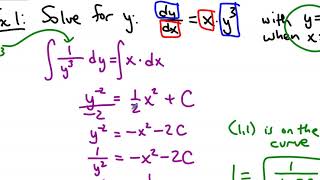 x.1: Solve for y: dy/dx = x · y³ with y=
when x=
∫ 1/y³ dy = ∫ x · dx
y⁻²/-2 = 1/2 x² + C
y⁻² = -x² - 2C
1/y² = -x² - 2C
(1,1) is on the
curve
1 =